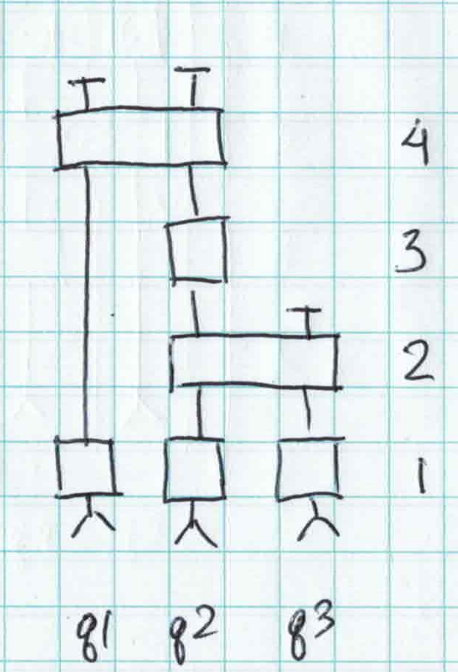 4
3
2
1
q1 q2 q3